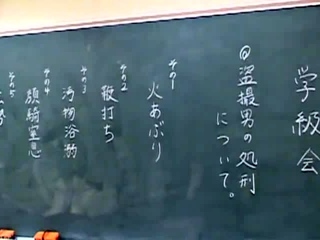 学級会
@盗撮男の処刑
について。
その1
火あぶり
その2
鞭打ち
その3
汚物浴刑
その4
顔騎窒息
その5